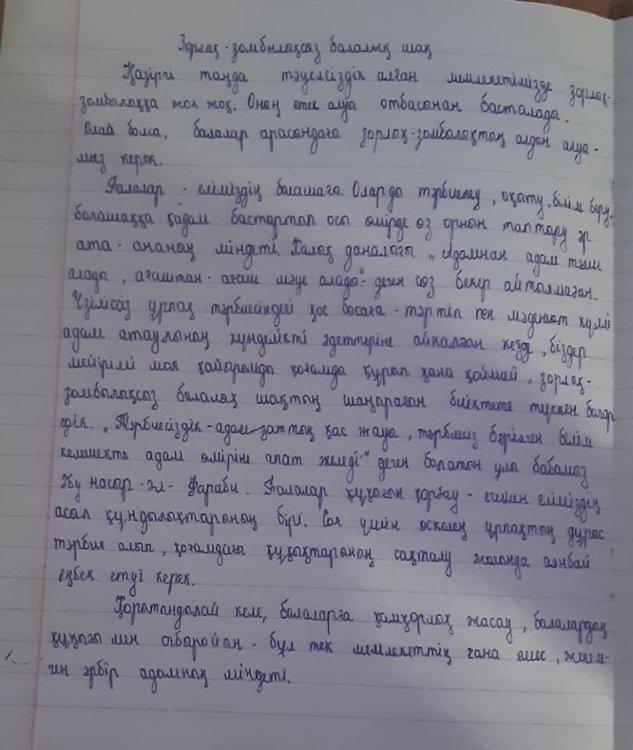 Зорлық-зомбылықсыз балалық шақ
Қазіргі таңда тәуелсіздік алған мемлекетімізде зорлық-
зомбылыққа жол жоқ. Оның етек алуы отбасынан басталады.
Олай болса, балалар арасындағы зорлық-зомбылықтың алдын алуы-
мыз керек.
Балалар - еліміздің болашағы. Оларды тәрбиелеу, оқыту, білім беру,
болашаққа қадам бастыртып осы өмірде өз орнын таптыру әр
ата-ананың міндеті. Халық даналығы „Адамнан адам тәлім
алады, ағаштан-ағаш мәуе алады" деген сөз бекер айтылмаған.
Үзіліссіз ұрпақ тәрбиесіндегі қос босаға - тәртіп пен мәдениет күллі
адам атаулының күнделікті әдеттеріне айналған кезде, біздер
мейірімі мол қайырымды қоғамды құрып қана қоймай, зорлық-
зомбылықсыз балалық шақтың шаңырағын биіктете түскен болар
едік. „Тәрбиесіздік-адамзаттың қас жауы, тәрбиесіз берілген білім
келешекте адам өміріне апат әкеледі" деген болатын ұлы бабамыз
Әбу Насыр-әл-Фараби. Балалар құқығын қорғау - еліміздің
асыл құндылықтарының бірі. Сол үшін өскелең ұрпақтың дұрыс
тәрбие алып, қоғамдағы құқықтарының сақталу жолында аянбай
еңбек етуі керек.
Қорытындылай келе, балаларға қамқорлық жасау, балалардың
құқығы мен абыройын - бұл тек мемлекеттің ғана емес, жеке-
ген әрбір адамның міндеті.